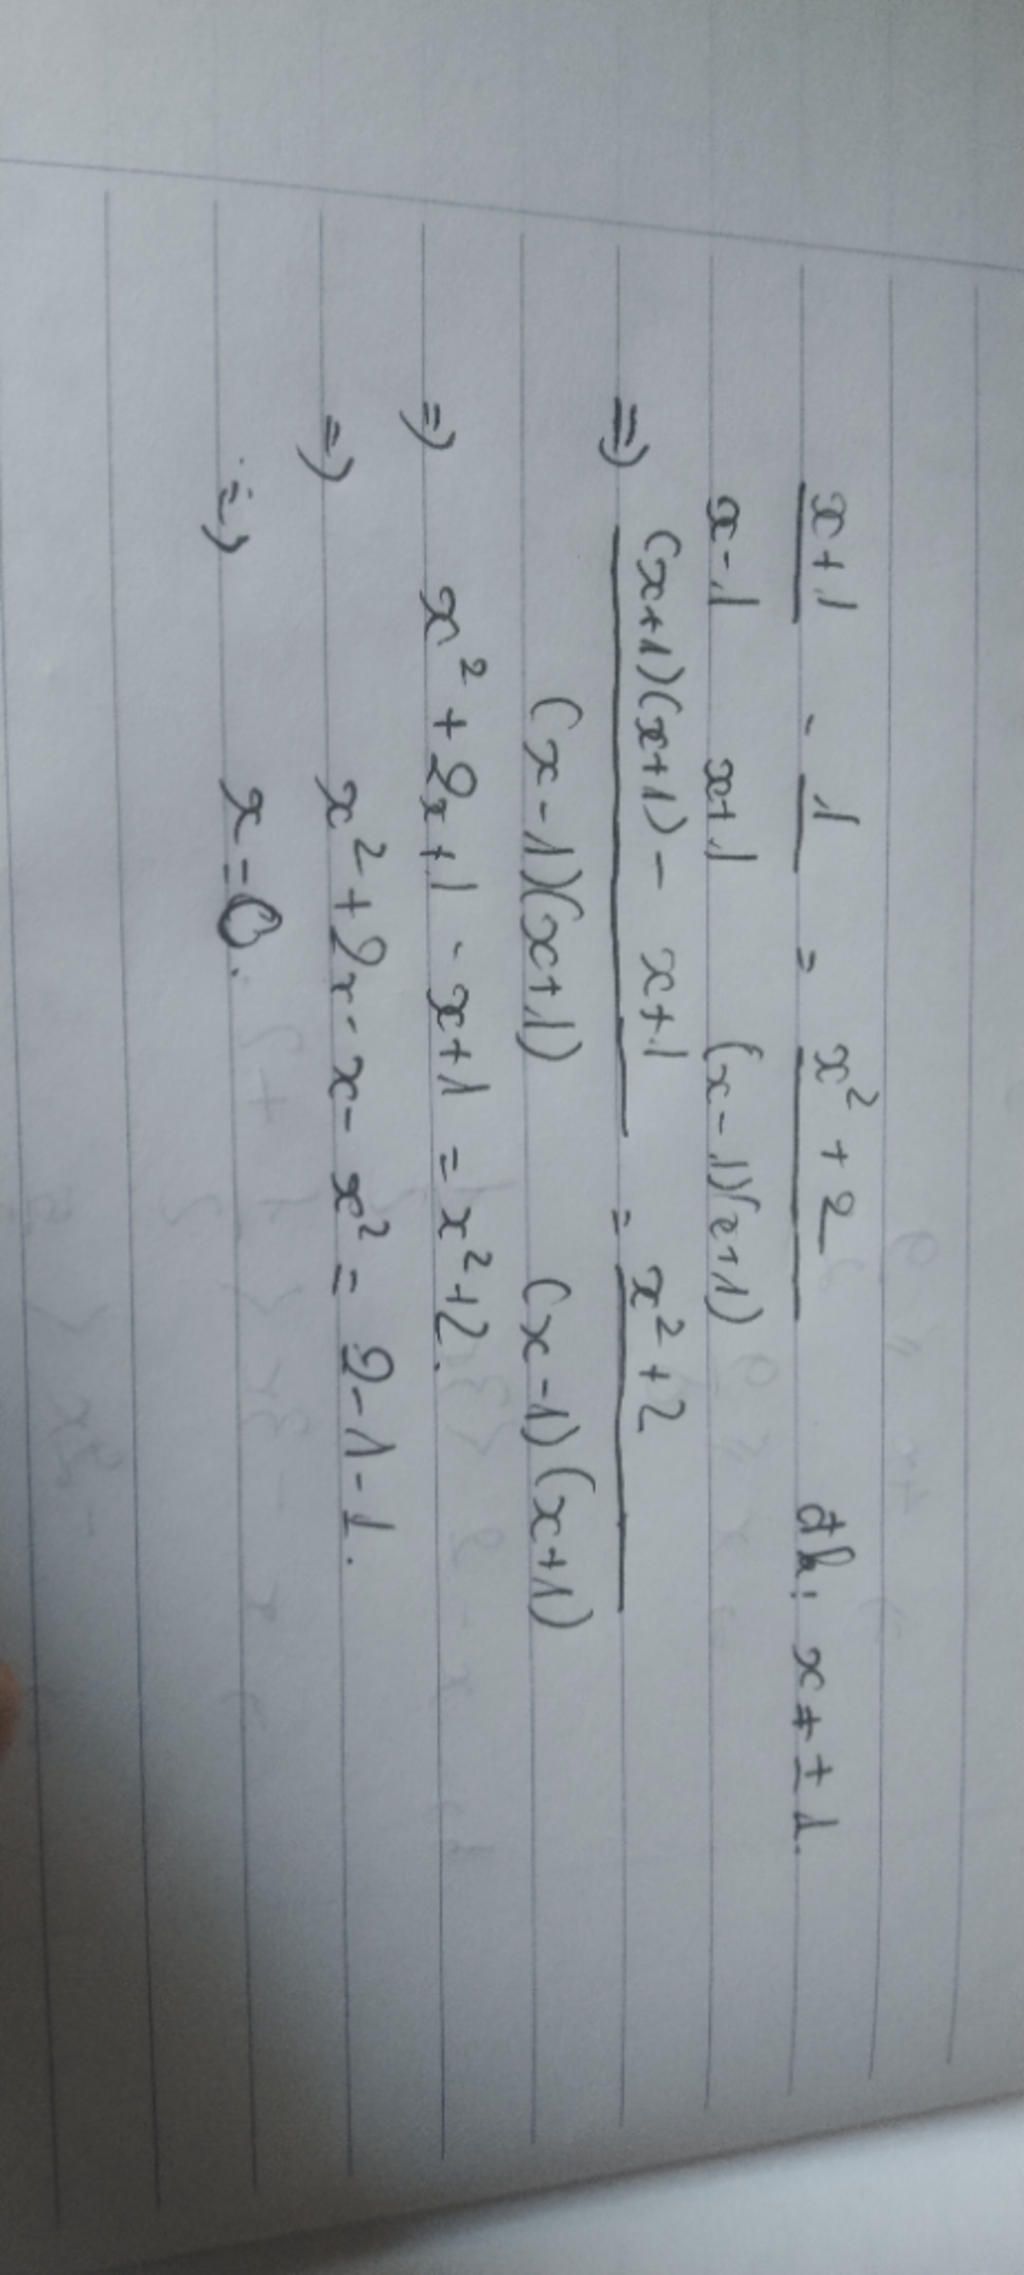 x+1/x-1 - 1/x+1 = x²+2/(x-1)(x+1) đk: x ≠ ±1.
=> (x+1)(x+1) - x+1/(x-1)(x+1) = x²+2/(x-1)(x+1)
=> x²+2x+1 - x+1 = x²+2.
=> x²+2x-x-x² = 2-1-1.
=> x=0.